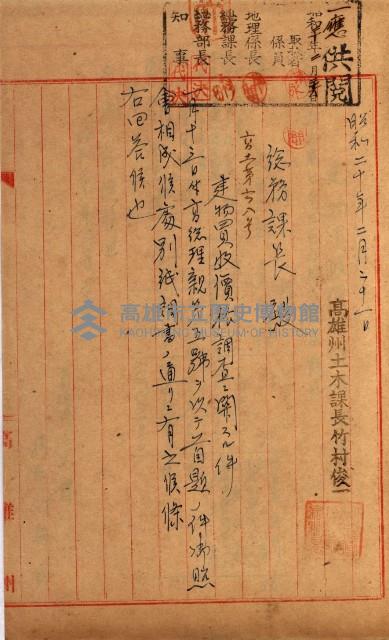 一應供閱
昭和 年 月 日
係員
地理係長
總務課長
總務部長
知事
昭和二十年二月二十一日
高雄州土木課長竹村俊一
總務課長 殿
高土第六八号
建物買收價格調査ニ關スル件
月十三日付高總理親第五號ヲ以テ首題ノ件御照
會相成候處別紙調書ノ通リニ有之候條
右回答候也
高雄市立歷史博物館
KAOHSIUNG MUSEUM OF HISTORY
高雄州